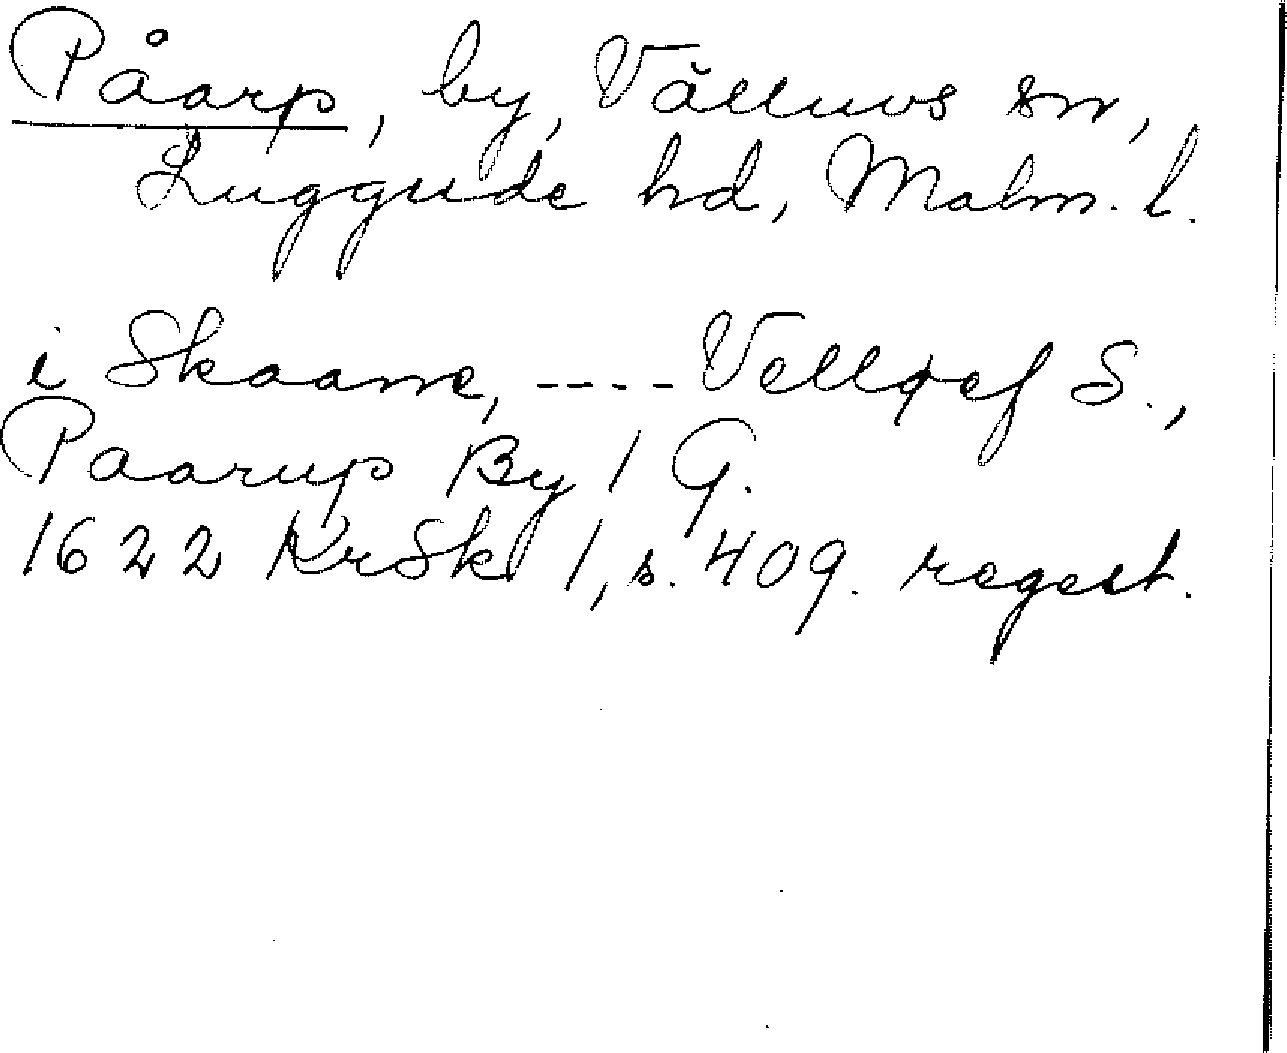 Påarp, by, Välluvs sn,
Luggude hd, Malm. l.
i Skaane, ---- Velløef S.,
Paarup By 1 G.
1622 KrSk 1, s. 409. regest.